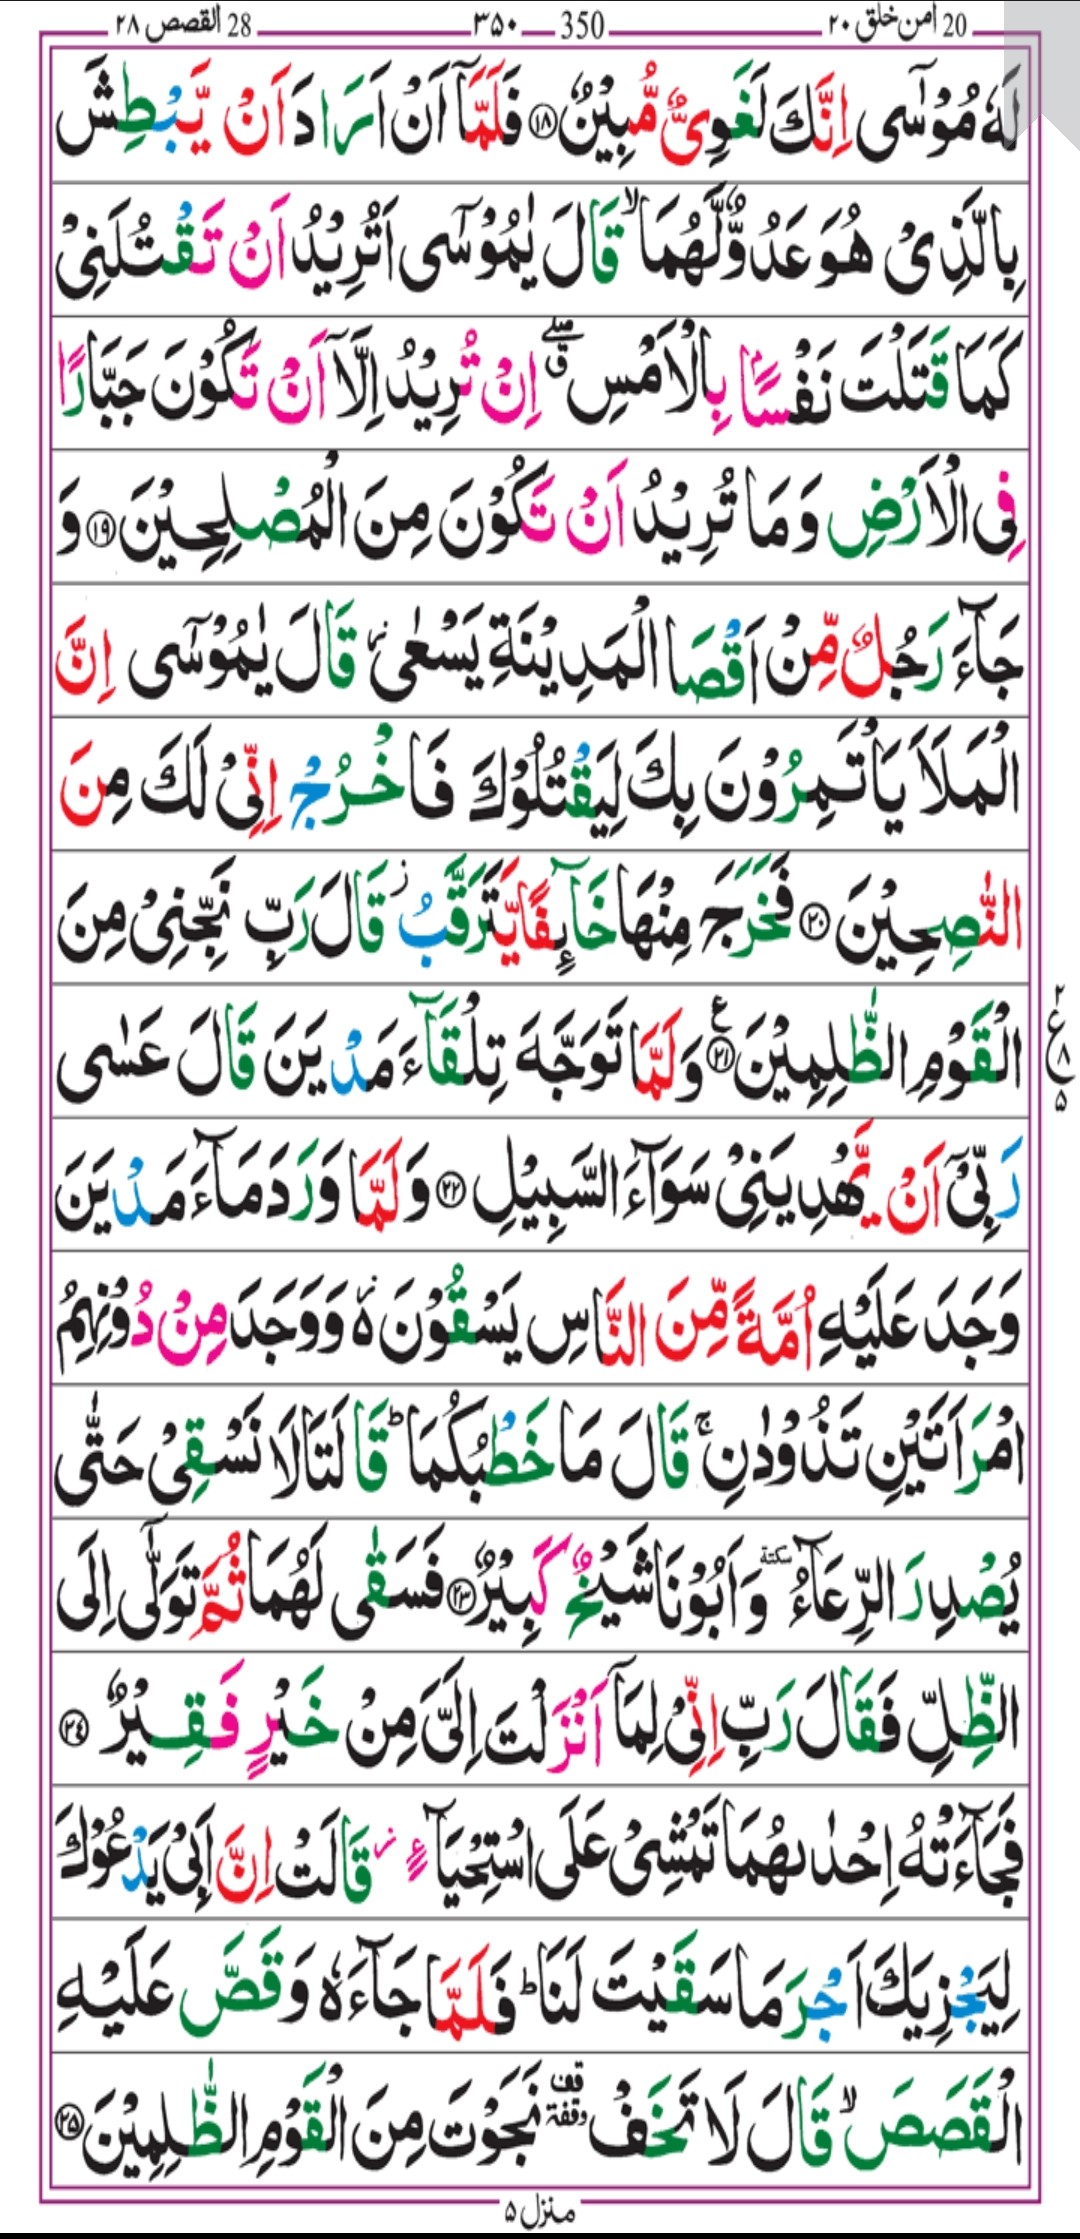 20 امن خلق ۲۰ 350 ۳۵۰ 28 القصص ۲۸
لَهٗ مُوْسٰۤى اِنَّكَ لَغَوِىٌّ مُّبِيْنٌ ۱۸ فَلَمَّاۤ اَنْ اَرَادَ اَنْ يَّبْطِشَ
بِالَّذِىْ هُوَ عَدُوٌّ لَّهُمَا ۙ قَالَ يٰمُوْسٰۤى اَتُرِيْدُ اَنْ تَقْتُلَنِىْ
كَمَا قَتَلْتَ نَفْسًۢا بِالْاَمْسِ ۖق اِنْ تُرِيْدُ اِلَّاۤ اَنْ تَكُوْنَ جَبَّارًا
فِى الْاَرْضِ وَمَا تُرِيْدُ اَنْ تَكُوْنَ مِنَ الْمُصْلِحِيْنَ ۱۹ وَ
جَآءَ رَجُلٌ مِّنْ اَقْصَا الْمَدِيْنَةِ يَسْعٰىؗ قَالَ يٰمُوْسٰۤى اِنَّ
الْمَلَاَ يَاْتَمِرُوْنَ بِكَ لِيَقْتُلُوْكَ فَاخْرُجْ اِنِّىْ لَكَ مِنَ
النّٰصِحِيْنَ ۲۰ فَخَرَجَ مِنْهَا خَآئِفًا يَّتَرَقَّبُ ز قَالَ رَبِّ نَجِّنِىْ مِنَ
الْقَوْمِ الظّٰلِمِيْنَ ۲۱ ع وَلَمَّا تَوَجَّهَ تِلْقَآءَ مَدْيَنَ قَالَ عَسٰى
۲ ع ۸ ۵
رَبِّىْۤ اَنْ يَّهْدِيَنِىْ سَوَآءَ السَّبِيْلِ ۲۲ وَلَمَّا وَرَدَ مَآءَ مَدْيَنَ
وَجَدَ عَلَيْهِ اُمَّةً مِّنَ النَّاسِ يَسْقُوْنَ ۬ەؗ وَوَجَدَ مِنْ دُوْنِهِمُ
امْرَاَتَيْنِ تَذُوْدٰنِ ۚ قَالَ مَا خَطْبُكُمَا ؕ قَالَتَا لَا نَسْقِىْ حَتّٰى
يُصْدِرَ الرِّعَآءُ سكتة وَاَبُوْنَا شَيْخٌ كَبِيْرٌ ۲۳ فَسَقٰى لَهُمَا ثُمَّ تَوَلّٰۤى اِلَى
الظِّلِّ فَقَالَ رَبِّ اِنِّىْ لِمَاۤ اَنْزَلْتَ اِلَىَّ مِنْ خَيْرٍ فَقِيْرٌ ۲٤
فَجَآءَتْهُ اِحْدٰىهُمَا تَمْشِىْ عَلَى اسْتِحْيَآءٍؗ قَالَتْ اِنَّ اَبِىْ يَدْعُوْكَ
لِيَجْزِيَكَ اَجْرَ مَا سَقَيْتَ لَنَا ؕ فَلَمَّا جَآءَهٗ وَقَصَّ عَلَيْهِ
الْقَصَصَ ۙ قَالَ لَا تَخَفْ قف وقفة نَجَوْتَ مِنَ الْقَوْمِ الظّٰلِمِيْنَ ۲۵
منزل ۵